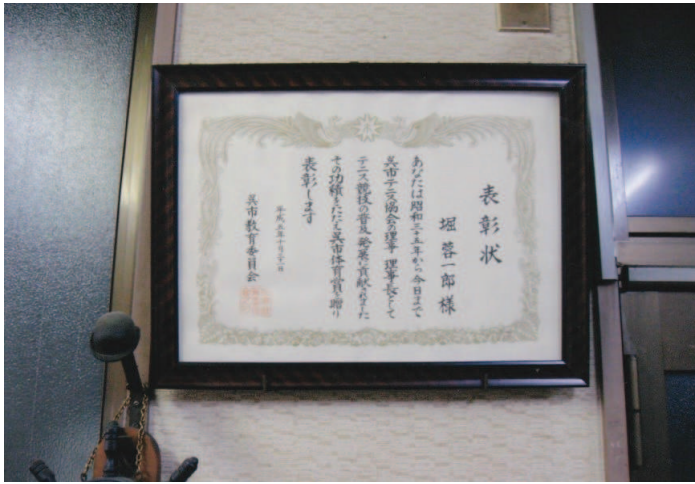 表彰状
堀啓一郎様
あなたは昭和三十五年から今日まで
呉市テニス協会の理事 理事長として
テニス競技の普及 発展に貢献されました
その功績をたたえ呉市体育賞を贈り
表彰します
平成五年十月二十一日
呉市教育委員会